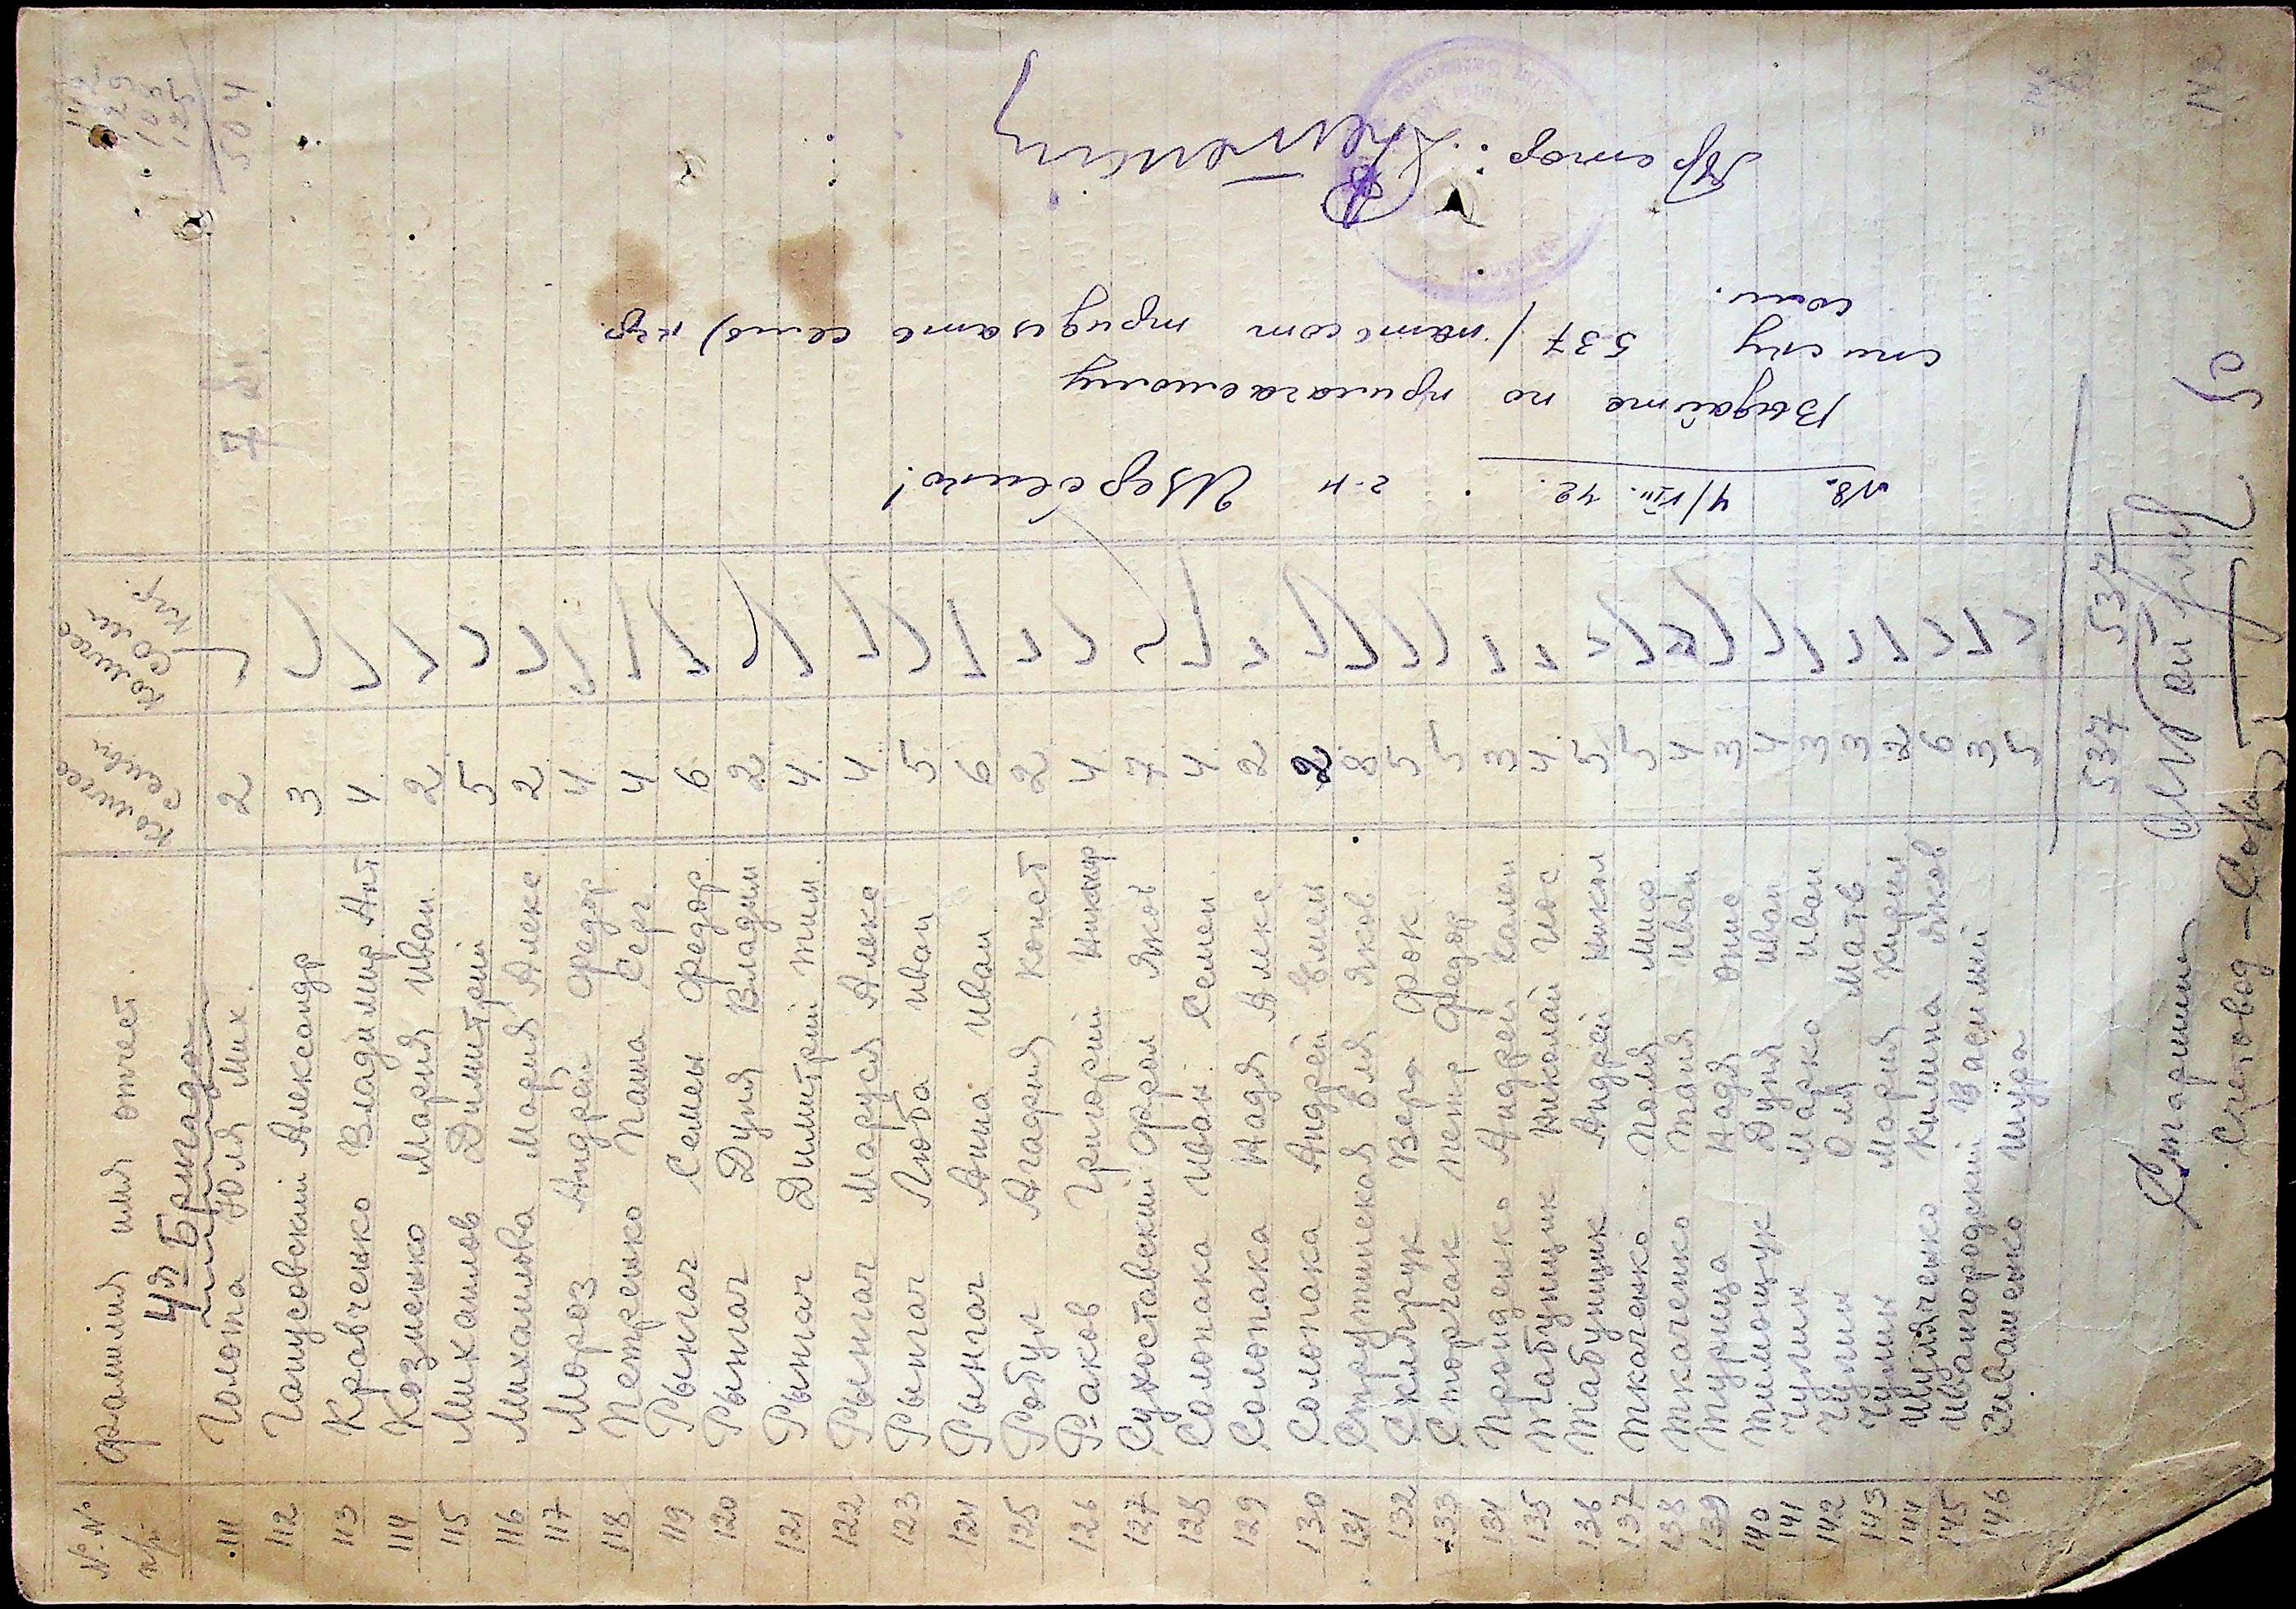 №.№ п/п фамилия имя отчест. Количес семьи Количес соли кгр.
4я Бригада
111 Голота Юля Мих. 2
112 Гапусовский Александр 3
113 Кравченко Владимир Ант. 4
114 Козменко Мария Иван. 2
115 Михаилов Димитрий 5
116 Михаилова Мария Алекс 2
117 Мороз Андрей Федор 4
118 Петренко Паша Серг 4
119 Рынгач Семен Федор 6
120 Рынгач Дуня Владим 2
121 Рынгач Димитрий Тим. 4
122 Рынгач Маруся Алекс 4
123 Рынгач Люба Иван 5
124 Рынгач Анна Иван 6
125 Робул Агадрия Конст 2
126 Раков Григорий Никиф 4
127 Сухоставский Фрол Яков 7
128 Солопака Иван. Семен. 4
129 Солопака Надя Алкс 2
130 Солопака Андрей Емел 2
131 Струтинская Еля Яков 8
132 Скляр̶рук Вера Фок 5
133 Сторчак Петр Федор 5
134 Проиденко Андрей Калин 3
135 Табунщик Николай Иос 4
136 Табунщик Андрей Никол 5
137 Ткаченко Поля Мир. 5
138 Ткаченко Таня Иван 4
139 Турица Надя Онис 3
140 Тимощук Дуня Иван 4
141 Чулин Марко Иван 3
142 Чулин Оля Матв 3
143 Чулин Мария Кирил 2
144 Шуляченко Килина Яков 6
145 Ивангородский Василий 3
146 Сиваненко Шура 5
537 537
Старшина
Счетовод
7 8.
142
129
108
125
504
50
142
№8. 4/VIII. 42. г-н
Выдайте по прилагаемому
списку 537 (пятьсот тридцать семь) кгр.
соли.
Претор: